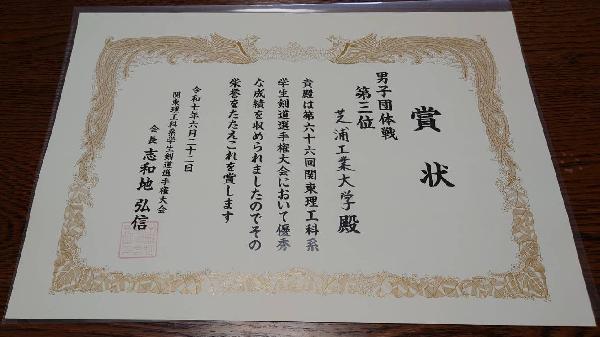 賞状
男子団体戦
第三位
芝浦工業大学殿
貴殿は第六十六回関東理工科系
学生剣道選手権大会において優秀
な成績を収められましたのでその
栄誉をたたえこれを賞します
令和七年六月二十二日
関東理工科系学生剣道選手権大会
会長 志和地 弘信